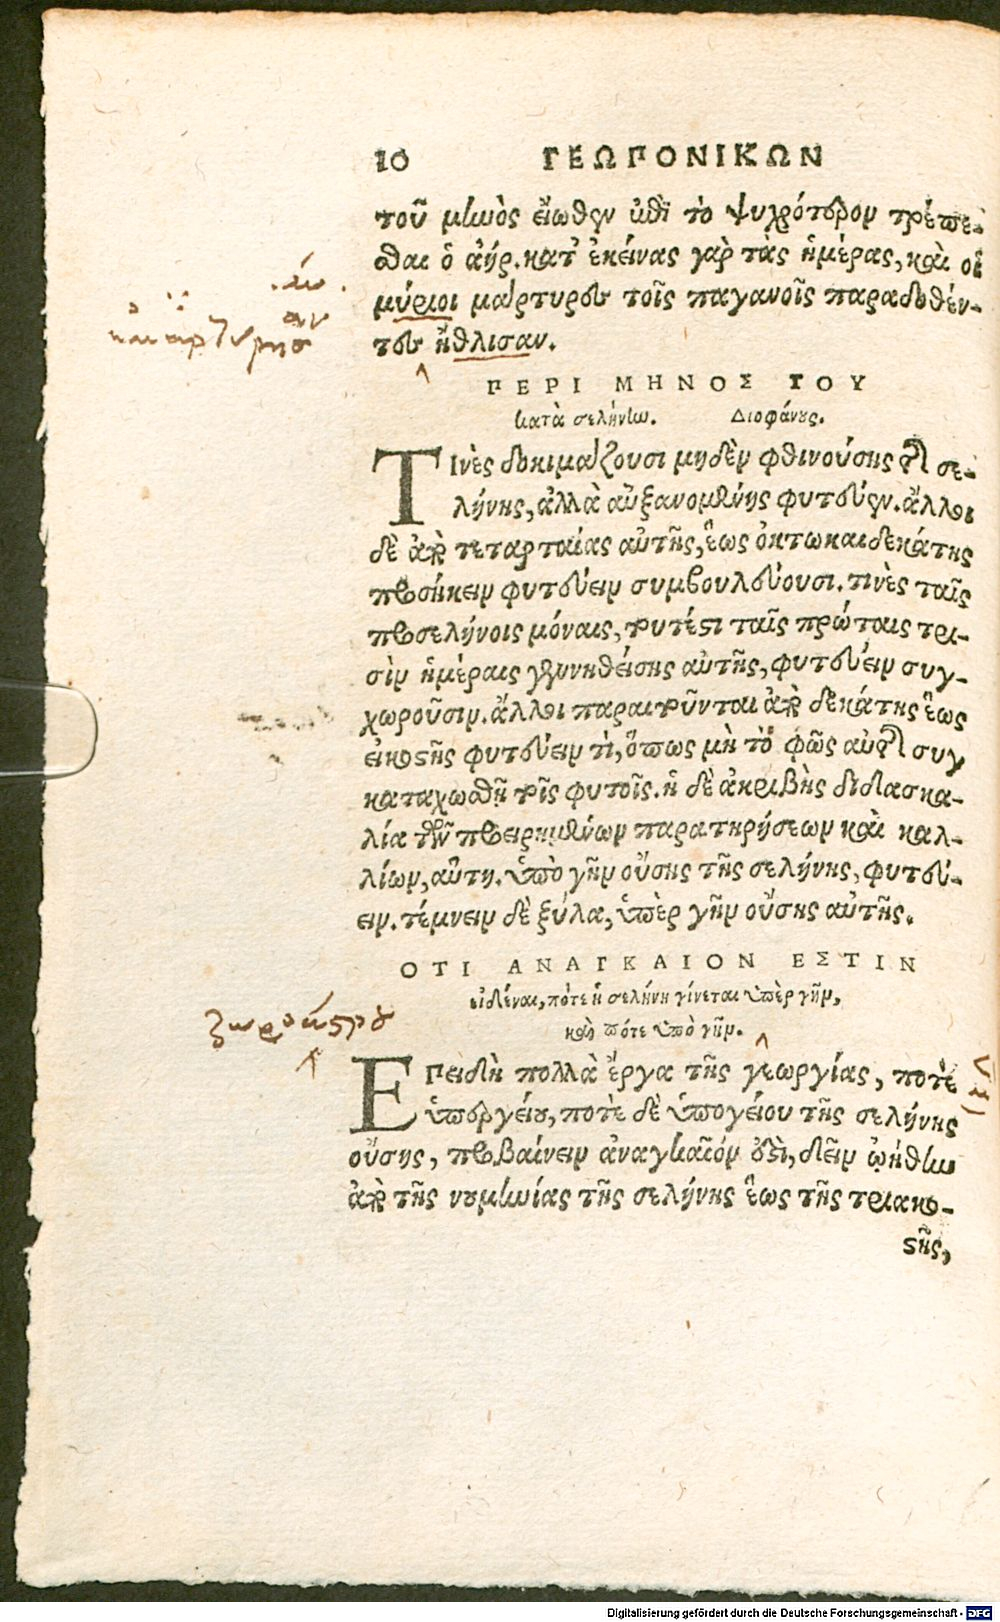 10 ΓΕΩΠΟΝΙΚΩΝ
τοῦ μηνὸς εἴωθεν ἐπὶ τὸ ψυχρότερον τρέπε-
σθαι ὁ ἀήρ. κατ' ἐκείνας γὰρ τὰς ἡμέρας, καὶ οἱ
μύριοι μάρτυρες τοῖς παγανοῖς παραδοθέν-
τες ἤθλισαν.
ΠΕΡΙ ΜΗΝΟΣ ΤΟΥ
κατὰ σελήνην. Διοφάνους.
ΤΙνὲς δοκιμάζουσι μηδὲν φθινούσης τῆς σε-
λήνης, ἀλλὰ αὐξανομένης φυτεύειν. ἄλλοι
δὲ ἀπὸ τεταρταίας αὐτῆς, ἕως ὀκτωκαιδεκάτης
προσήκειν φυτεύειν συμβουλεύουσι. τινὲς ταῖς
προσελήνοις μόναις, τουτέστι ταῖς πρώταις τρι-
σὶν ἡμέραις γεννηθείσης αὐτῆς, φυτεύειν συγ-
χωροῦσιν. ἄλλοι παραιτοῦνται ἀπὸ δεκάτης ἕως
εἰκοστῆς φυτεύειν τὶ, ὅπως μὴ τὸ φῶς αὐτῆς συγ
καταχωσθῇ τοῖς φυτοῖς. ἡ δὲ ἀκριβὴς διδασκα-
λία τῶν προειρημένων παρατηρήσεων καὶ καλ-
λίων, αὕτη. ὑπὸ γῆν οὔσης τῆς σελήνης, φυτεύ-
ειν. τέμνειν δὲ ξύλα, ὑπὲρ γῆν οὔσης αὐτῆς.
ΟΤΙ ΑΝΑΓΚΑΙΟΝ ΕΣΤΙΝ
εἰδέναι, πότε ἡ σελήνη γίνεται ὑπὲρ γῆν,
καὶ πότε ὑπὸ γῆν.
ζωροάστρου
ΕΠειδὴ πολλὰ ἔργα τῆς γεωργίας, ποτὲ
ὑπεργείου, ποτὲ δὲ ὑπογείου τῆς σελήνης
οὔσης, προβαίνειν ἀναγκαῖόν ἐστι, δεῖν ᾠήθην
ἀπὸ τῆς νουμηνίας τῆς σελήνης ἕως τῆς τριακο-
στῆς,
Digitalisierung gefördert durch die Deutsche Forschungsgemeinschaft - DFG